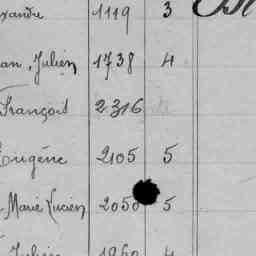 xandre 1119 3
an, Julien 1738 4
François 2316
Eugène 2105 5
Marie Lucien 2050 5
Julien 1960 4